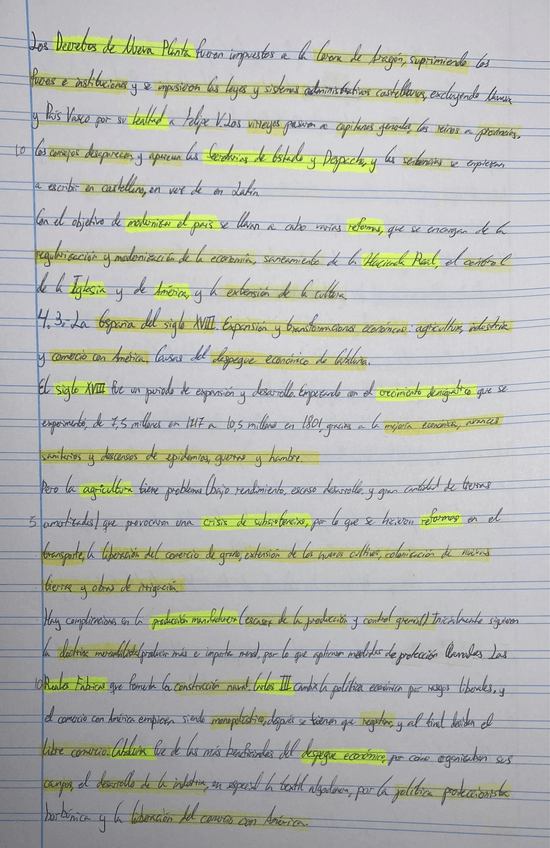 Los Decretos de Nueva Planta fueron impuestos a la Corona de Aragón, suprimiendo los
fueros e instituciones y se impusieron las leyes y sistemas administrativos castellanos, excluyendo Navarra
y País Vasco por su lealtad a Felipe V. Los virreyes pasaron a capitanes generales, los reinos a provincias,
10 los consejos desaparecen y aparecen las Secretarías de Estado y Despacho, y las sentencias se empiezan
a escribir en castellano, en vez de en Latín.
Con el objetivo de modernizar el país se llevan a cabo varias reformas, que se encargan de la
regularización y modernización de la economía, saneamiento de la Hacienda Real, el control
de la Iglesia y de América, y la extensión de la cultura.
4.3. La España del siglo XVIII. Expansión y transformaciones económicas: agricultura, industria
y comercio con América. Causas del despegue económico de Cataluña.
El siglo XVIII fue un periodo de expansión y desarrollo. Empezando con el crecimiento demográfico que se
experimentó, de 7,5 millones en 1717 a 10,5 millones en 1801, gracias a la mejoría económica, avances
sanitarios y descensos de epidemias, guerras y hambre.
Pero la agricultura tiene problemas (bajo rendimiento, escaso desarrollo, y gran cantidad de tierras
5 amortizadas) que provocaron una crisis de subsistencias, por lo que se hicieron reformas en el
transporte, la liberación del comercio de grano, extensión de los nuevos cultivos, colonización de nuevas
tierras y obras de irrigación.
Hay complicaciones en la producción manufacturera (escasez de la producción y control gremial) Inicialmente siguieron
la doctrina mercantilista (producir más e importar menos), por lo que aplicaron medidas de protección llamadas Las
10 Reales Fábricas que fomenta la construcción naval. Carlos III cambia la política económica por rasgos liberales, y
el comercio con América empieza siendo monopolística, después se tienen que registrar, y al final deciden el
libre comercio. Cataluña fue de las más beneficiadas del despegue económico, por como organizaban sus
campos, el desarrollo de la industria, en especial la textil algodonera, por la política proteccionista
borbónica y la liberación del comercio con América.